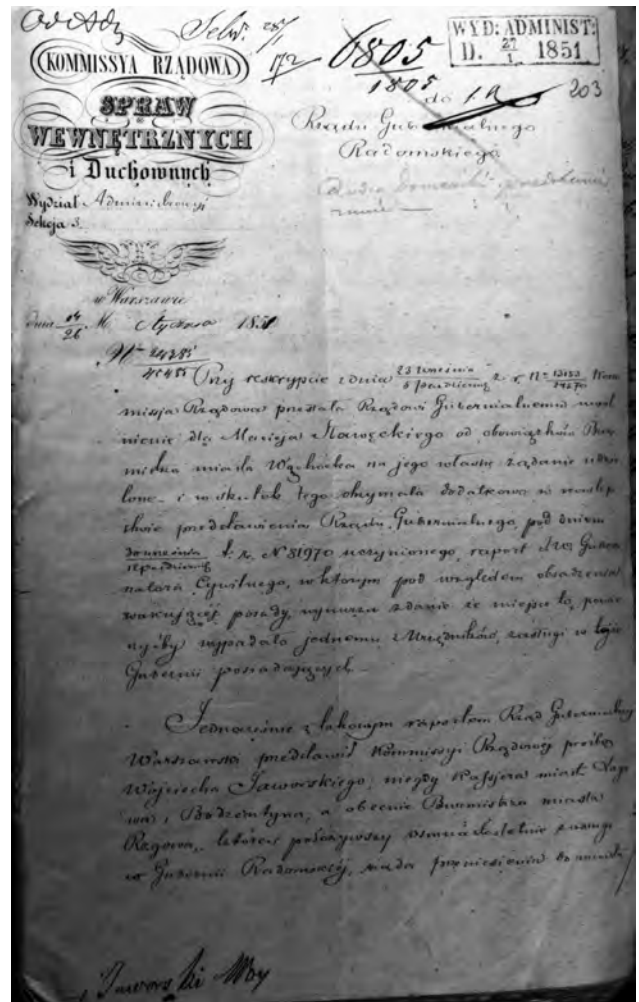 KOMMISSYA RZĄDOWA
SPRAW
WEWNĘTRZNYCH
i Duchownych
Wydział Administracyi
Sekcja 3.
w Warszawie
dnia 14/26 M. Stycznia 1851
Nr 24285/45485
28/1
172
6805
1805
WYD: ADMINIST:
D. 27/1. 1851
203
do
Rządu Gubernialnego
Radomskiego
Przy reskrypcie z dnia 23 Września z. r. Nr Kom-
missja Rządowa przesłała Rządowi Gubernialnemu uwol-
nienie dla Macieja od obowiązków Bur-
mistrza miasta Wąchocka na jego własne żądanie udzie-
lone i w skutek tego otrzymała dodatkowo w następ-
stwie przedstawienia Rządu Gubernialnego, pod dniem
z. r. N 81970 uczynionego, raport Guber-
natora Cywilnego, w którym pod względem obsadzenia
wakującej posady, wynurza zdanie że miejsce to,
wypadało jednemu z Urzędników, zasługi w tejże
Gubernii posiadających.
Jednocześnie z takowym raportem Rząd Gubernialny
Warszawski przedstawił Kommissyi Rządowej prośbę
Wojciecha Jaworskiego, niegdy Kassjera miast Łago-
wa i Bodzentyna, a obecnie Burmistrza miasta
Rzgowa, który położywszy osmnastoletnie zasługi
w Gubernii Radomskiej, żąda przeniesienia
Jaworski Woy